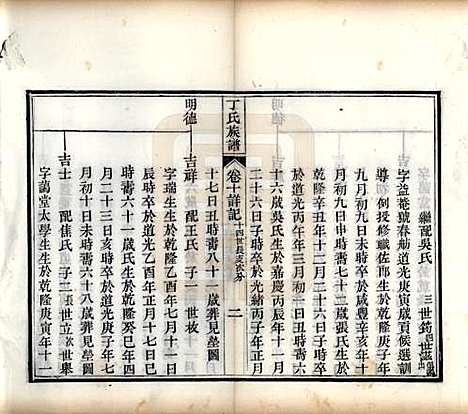 繼配吳氏 三世鈞
字益菴號春舫道光庚寅歲貢候選訓
導例授修職佐郎生於乾隆己亥年十
月初九日未時卒於咸豐辛亥年十一
月初九日申時壽七十三歲張氏生於
乾隆辛丑年十二月十二日子時卒
於道光丙午年三月初二日戌時壽六
十六歲吳氏生於嘉慶丙辰年十一月
二十六日子時卒於光緒丙子年正月
丁氏族譜
卷十詳記
二
十七日丑時壽八十一歲葬見塋圖
明德
吉祥 配王氏 子一 世坡
字瑞生生於乾隆乙酉年七月十一日
辰時卒於道光乙酉年正月十七日巳
時壽六十一歲氏生於乾隆癸巳年四
月二十三日亥時卒於道光 年十二
月初十日未時壽六十八歲葬見塋圖
吉士 配焦氏 子二 張世立 世舉
字藹堂太學生生於乾隆庚寅年十一